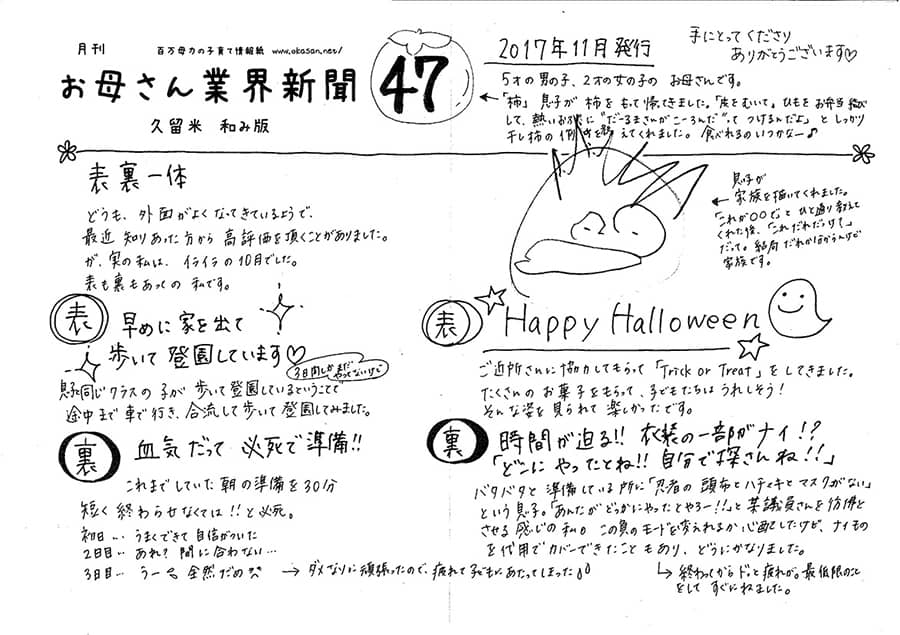 月刊
百万母力の子育て情報紙 www.okasan.net/
お母さん業界新聞
47
久留米 和み版
2017年11月発行
手にとってくださり
ありがとうございます♡
5才の男の子、2才の女の子の お母さんです。
←「柿」息子が柿をもって帰てきました。「皮をむいて。ひもをお弁当結び
して、熱いお湯に"だーるまさんがこーろんだ"って つけるんだよ」と しっかり
干し柿の作り方を教えてくれました。食べれるのいつかなー♪
表裏一体
どうも、外面がよくなってきているようで、
最近 知りあった方から 高評価を頂くことがありました。
が、実の私は、イライラの10月でした。
表も裏もあっての 私です。
表
早めに家を出て
歩いて登園しています♡
3日間しかまだ
やってないけど
息子と同じクラスの子が歩いて登園しているということで
途中まで車で行き、合流して歩いて登園してみました。
裏
血気だって 必死で準備!!
これまでしていた朝の準備を30分
短く終わらせなくては!!と必死。
初日… うまくできて自信がついた
2日目… あれ?間に合わない…
3日目… うー 全然だめ
→ ダメなりに頑張ったので、疲れて子どもにあたってしまった
息子が
← 家族を描いてくれました。
「これが〇〇で」とひと通り教えて
くれた後、「これだれだっけ?」
だって。結局だれか分からんけど
家族です。
表
Happy Halloween
ご近所さんに協力してもらって「Trick or Treat」をしてきました。
たくさんのお菓子をもらって、子どもたちはうれしそう!
そんな姿を見られて楽しかったです。
裏
時間が迫る!! 衣装の一部がナイ!?
「どこにやったとね!!自分で探さんね!!」
バタバタと準備している所に「忍者の頭布とハチマキとマスクがない」
という息子。「あんたがどっかにやったとやろー!!」と某議員さんを彷彿と
させる感じの私。この負のモードを変えれるか心配したけど、ナイもの
を代用でカバーできたこともあり、どうにかなりました。
↳ 終わってからドッと疲れが。最低限のこと
をして すぐにねました。